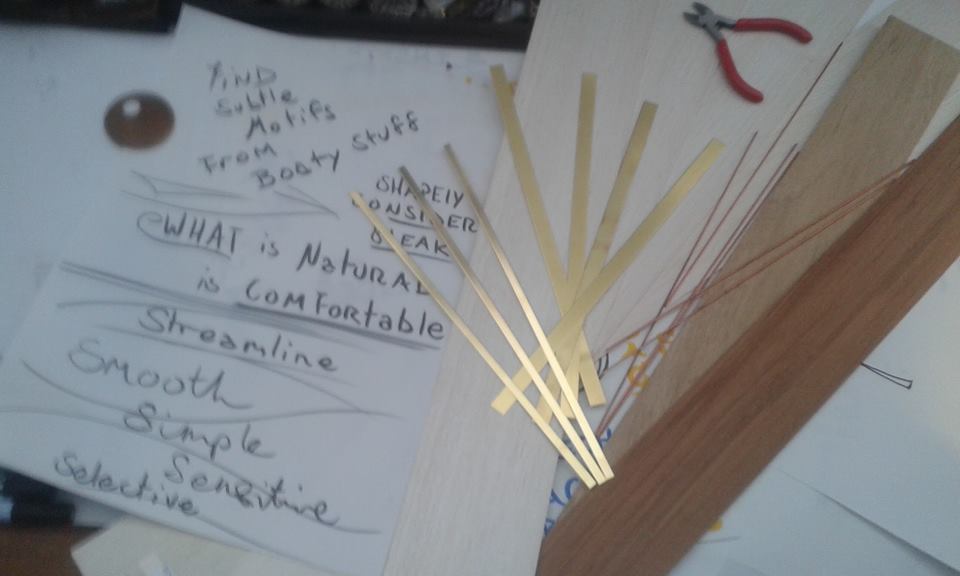 FIND
SUBTLE
MOTIFS
FROM
STUFF
SHAPELY
CONSIDER
WHAT is NATURAL
is COMFORTABLE
Streamline
Smooth
Simple
Sensitive
Selective